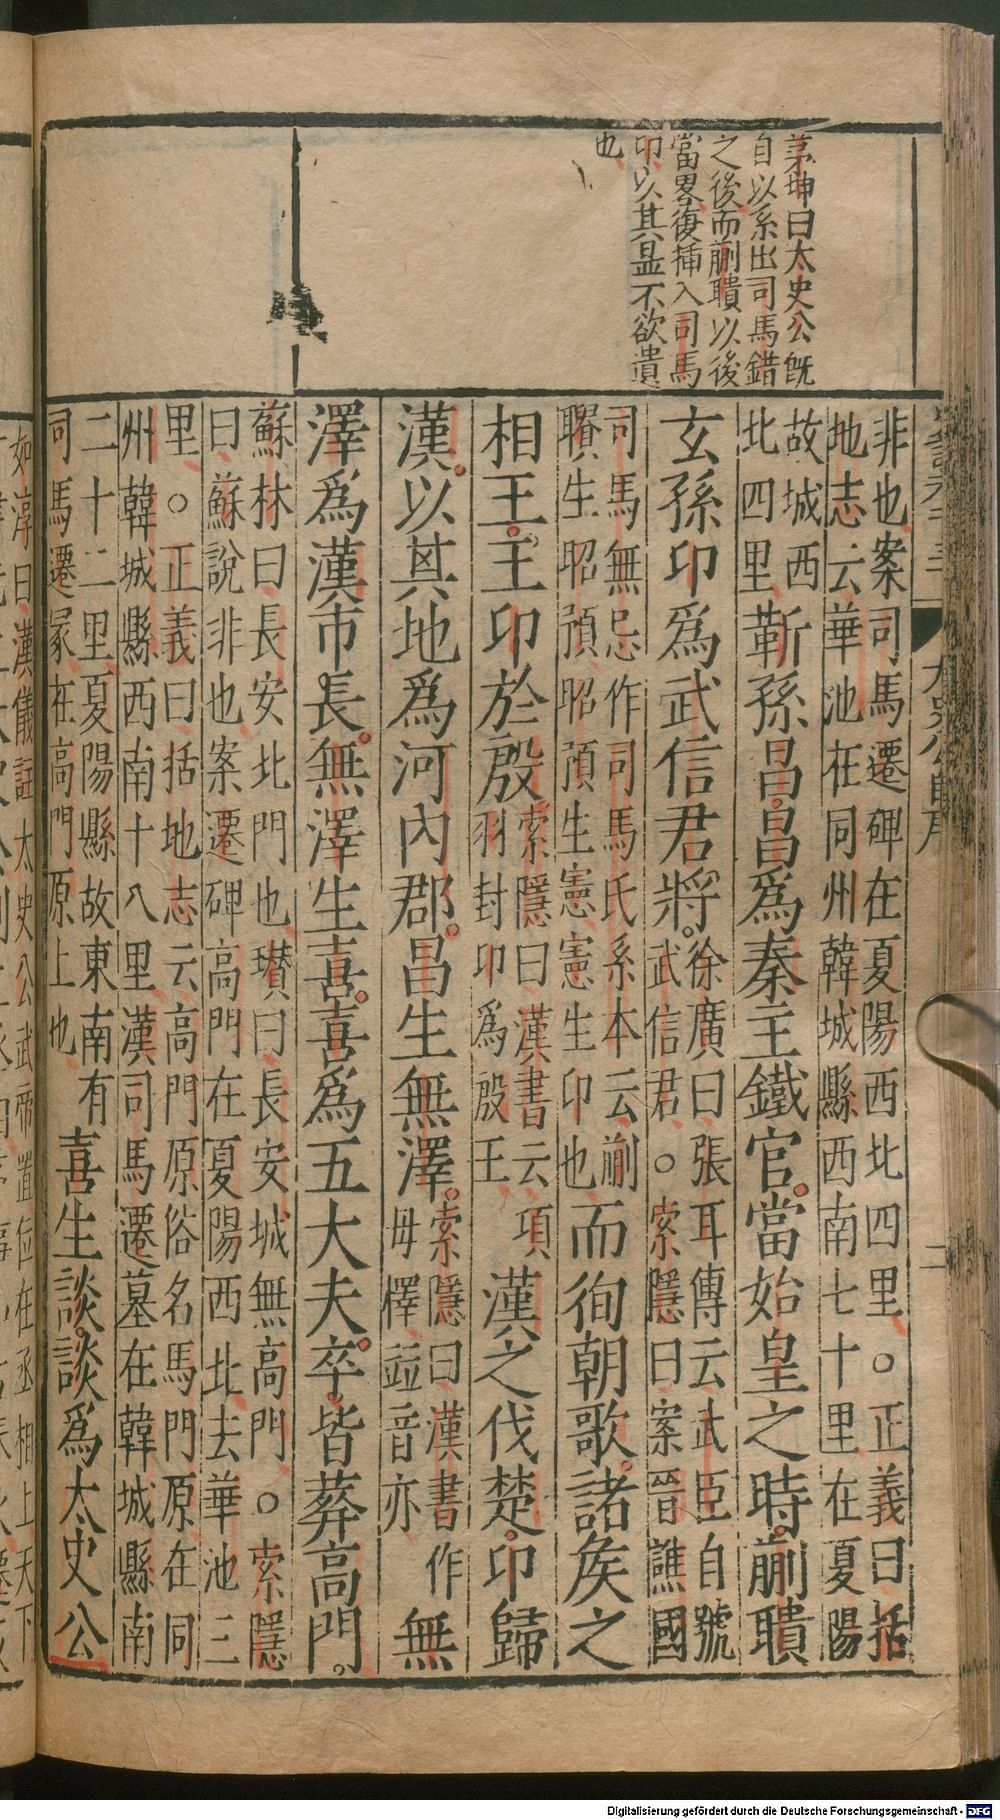 茅坤曰太史公旣
自以系出司馬錯
之後而蒯聵以後
當畧復揷入司馬
卬以其显不欲遺
也
非也案司馬遷碑在夏陽西北四里○正義曰括
地志云華池在同州韓城縣西南七十里在夏陽
故城西
北四里
靳孫昌昌爲秦主鐵官當始皇之時蒯聵
玄孫卬爲武信君將
徐廣曰張耳傳云武臣自號
武信君○索隱曰案晉譙國
司馬無忌作司馬氏系本云蒯
聵生昭預昭預生憲憲生卬也
而徇朝歌諸矦之
相王王卬於殷
索隱曰漢書云項
羽封卬爲殷王
漢之伐楚卬歸
漢以其地爲河內郡昌生無澤
索隱曰漢書作
毋檡並音亦
無
澤爲漢市長無澤生喜喜爲五大夫卒皆葬高門
蘇林曰長安北門也瓚曰長安城無高門○索隱
曰蘇說非也案遷碑高門在夏陽西北去華池三
里○正義曰括地志云高門原俗名馬門原在同
州韓城縣西南十八里漢司馬遷墓在韓城縣南
二十二里夏陽縣故東南有
司馬遷冢在高門原上也
喜生談談爲太史公
如淳曰漢儀註太史公武帝置位在丞相上天下
二
Digitalisierung gefördert durch die Deutsche Forschungsgemeinschaft - DFG